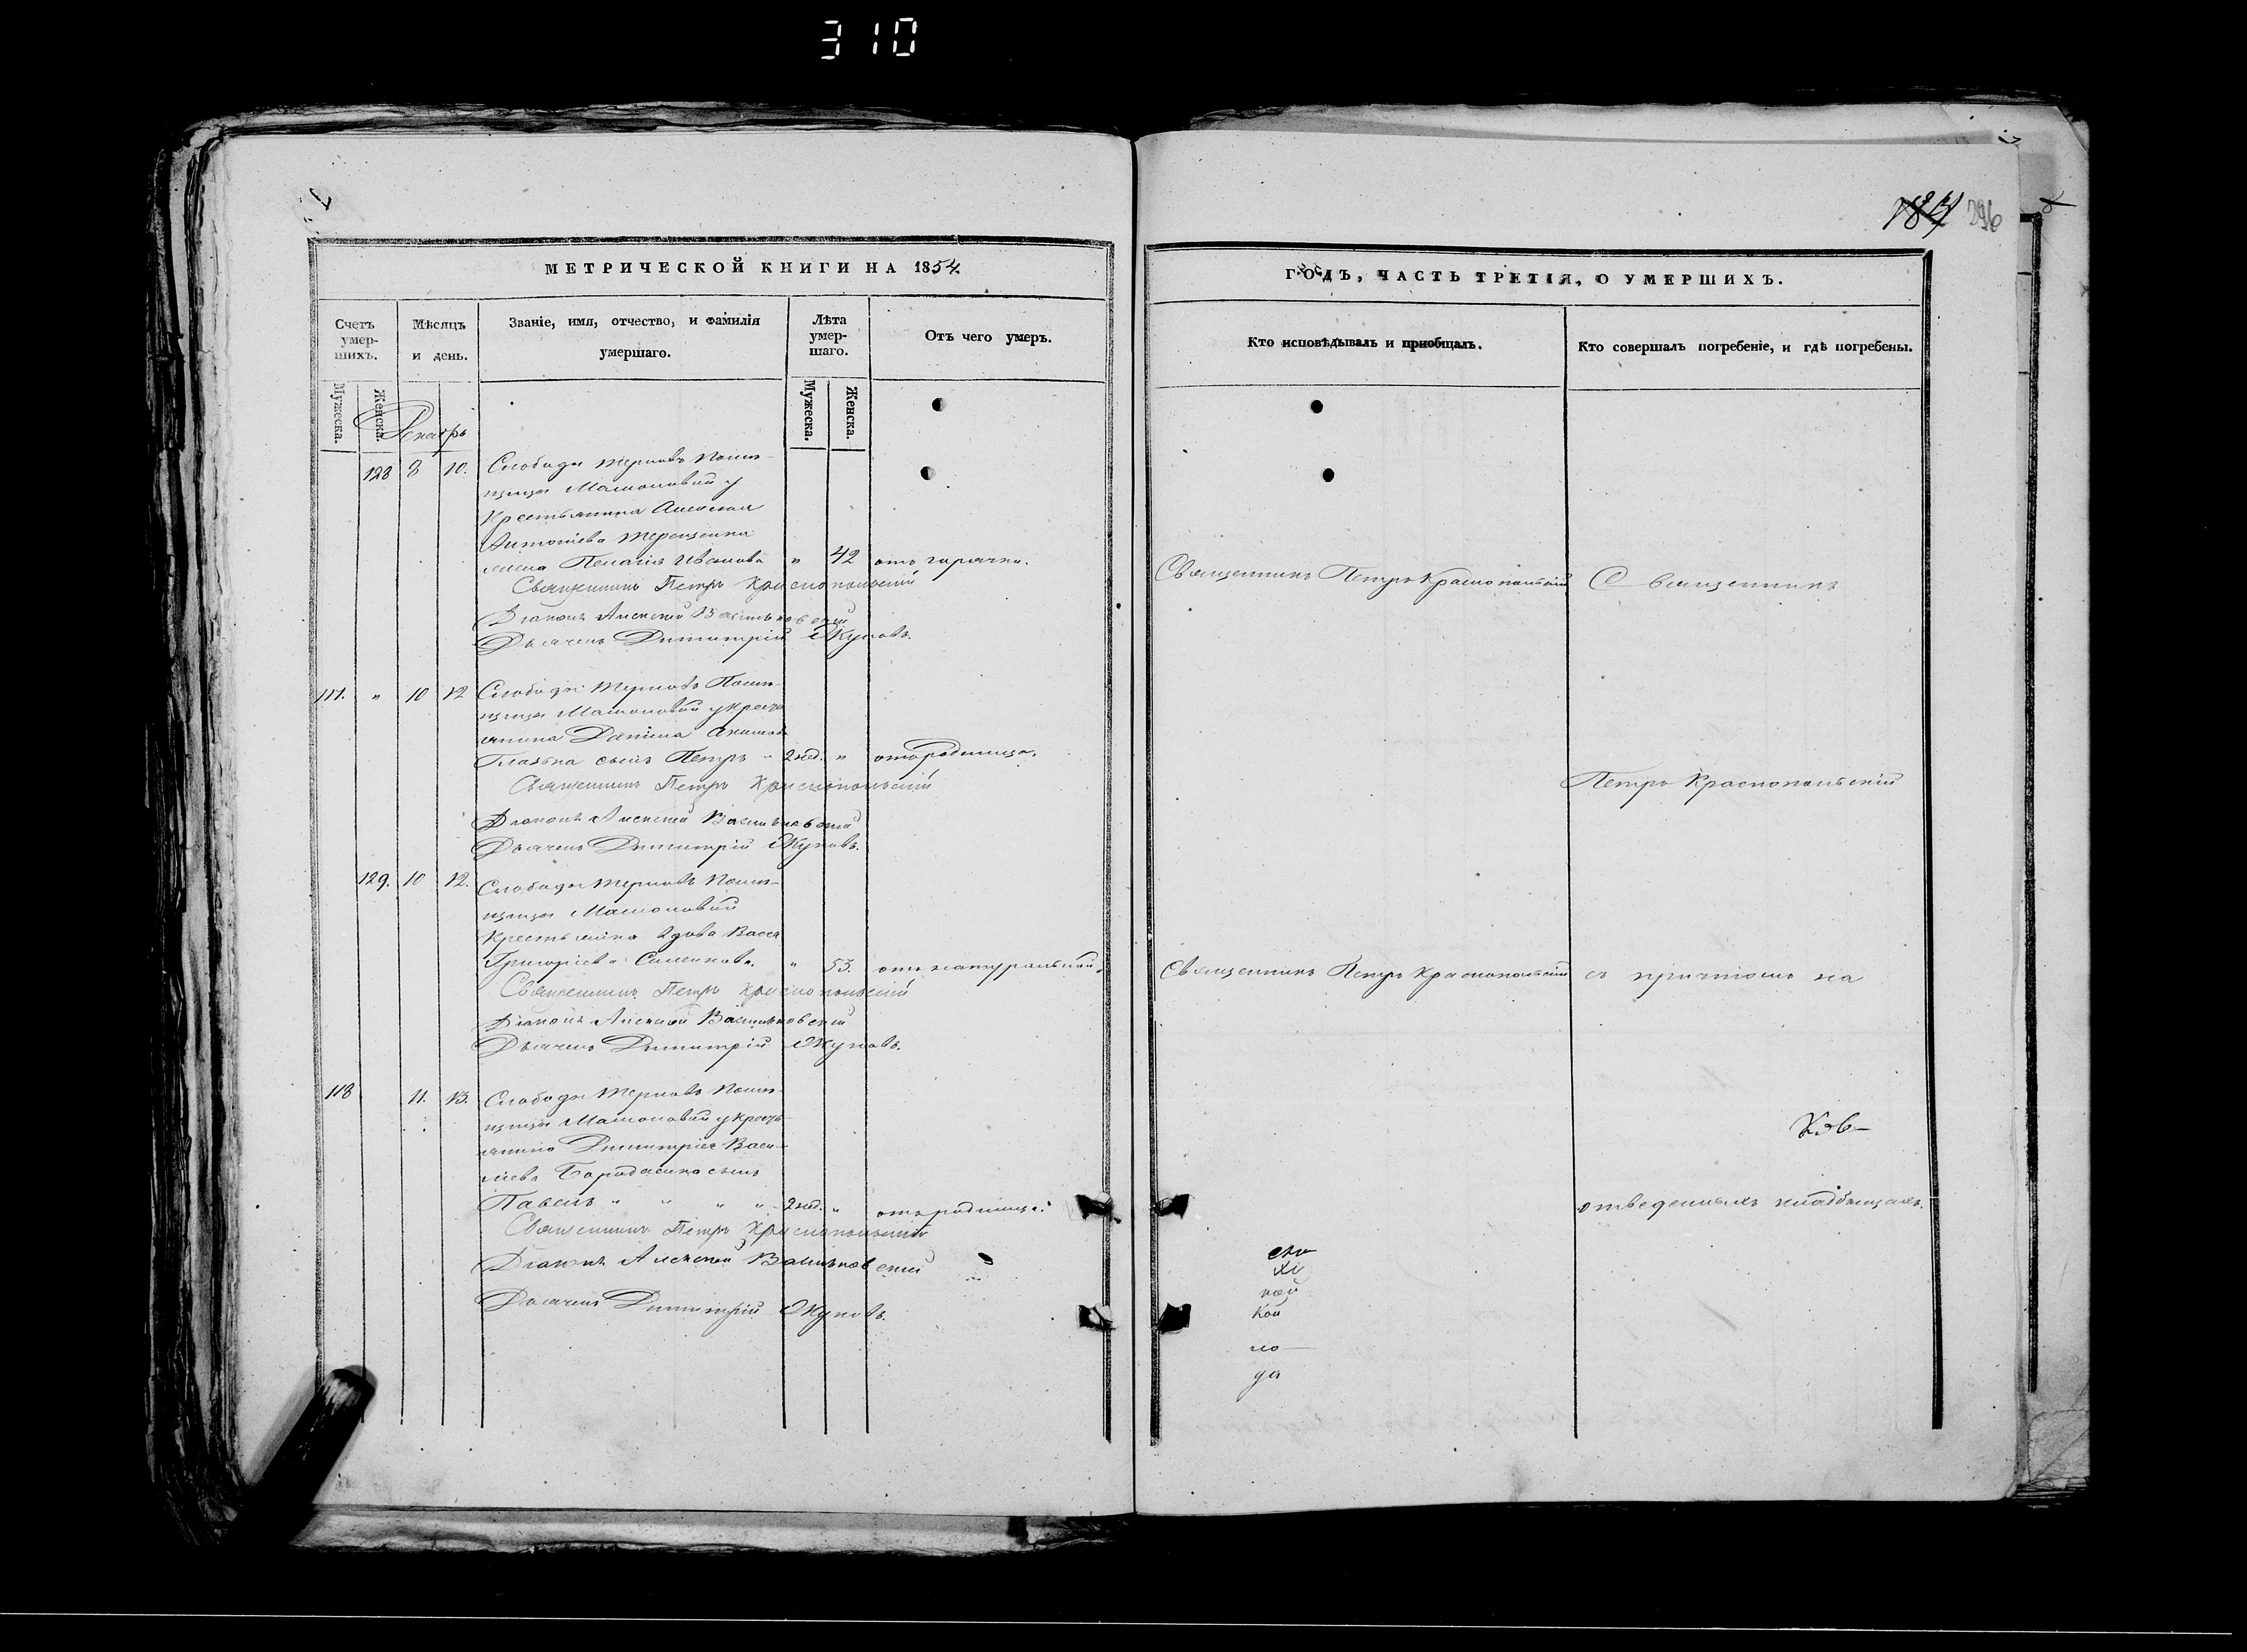 310
296
МЕТРИЧЕСКОЙ КНИГИ НА 1854.
ГОДЪ, ЧАСТЬ ТРЕТІЯ, О УМЕРШИХЪ.
Счетъ умер-шихъ.
Мѣсяцъ и день.
Званіе, имя, отчество, и фамилія умершаго.
Лѣта умер-шаго.
Отъ чего умеръ.
Кто исповѣдывалъ и приобщалъ.
Кто совершалъ погребеніе, и гдѣ погребены.
Мужеска.
Женска.
Мужеска.
Женска.
Декабрь
128 8 10. Слободы Терновъ Помѣ-
щицы Мамоновой у
Крестьянина Алексея
Антоніева Терещенка
жена Пелагія Иванова " 42 отъ горячки.
Священникъ Петръ Краснопольскій
Священникъ
Священникъ Петръ Краснопольскій
Діаконъ Алексѣй Васильковскій
Дьячекъ Димитрій Жуковъ.
117. " 10 12 Слободы Терновъ Помѣ-
щицы Мамоновой у крестъ
янина Даніила
сынъ Петръ " 2 нед. " отъ родимца.
Священникъ Петръ Краснопольскій
Петръ Краснопольскій
Діаконъ Алексѣй Васильковскій
Дьячекъ Димитрій Жуковъ.
129. 10 12. Слободы Терновъ Помѣ-
щицы Мамоновой
Крестьянка вдова Васса
Григоріева " 53. отъ натуральной.
Священникъ Петръ Краснопольскій
съ причтомъ на
Священникъ Петръ Краснопольскій
Діаконъ Алексѣй Васильковскій
Дьячекъ Димитрій Жуковъ.
118 11. 13. Слободы Терновъ Помѣ-
щицы Мамоновой у кресть-
янина Димитрія Васи-
ліева сынъ
Павелъ " " " " 2 нед. " отъ родимца.
отведенныхъ кладбищахъ.
Священникъ Петръ Краснопольскій
Діаконъ Алексѣй Васильковскій
Дьячекъ Димитрій Жуковъ.
кой
да